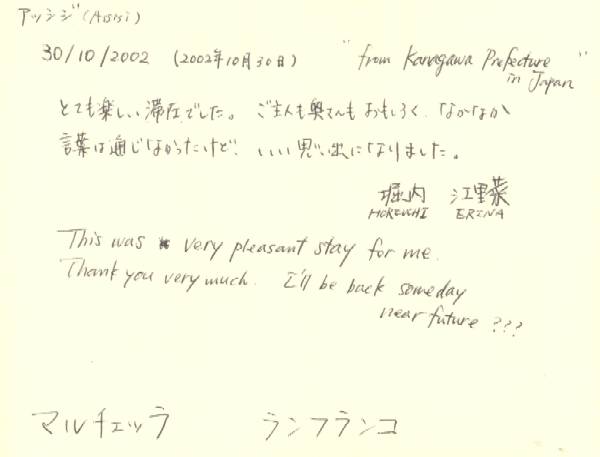 アッシジ (Assisi)
30/10/2002 (2002年10月30日) "from Kanagawa Prefecture in Japan"
とても楽しい滞在でした。ご主人も奥さんもおもしろく、なかなか
言葉は通じなかったけど、いい思い出になりました。
堀内 江里菜
HORIUCHI ERINA
This was very pleasant stay for me.
Thank you very much. I'll be back someday
near future ???
マルチェッラ ランフランコ